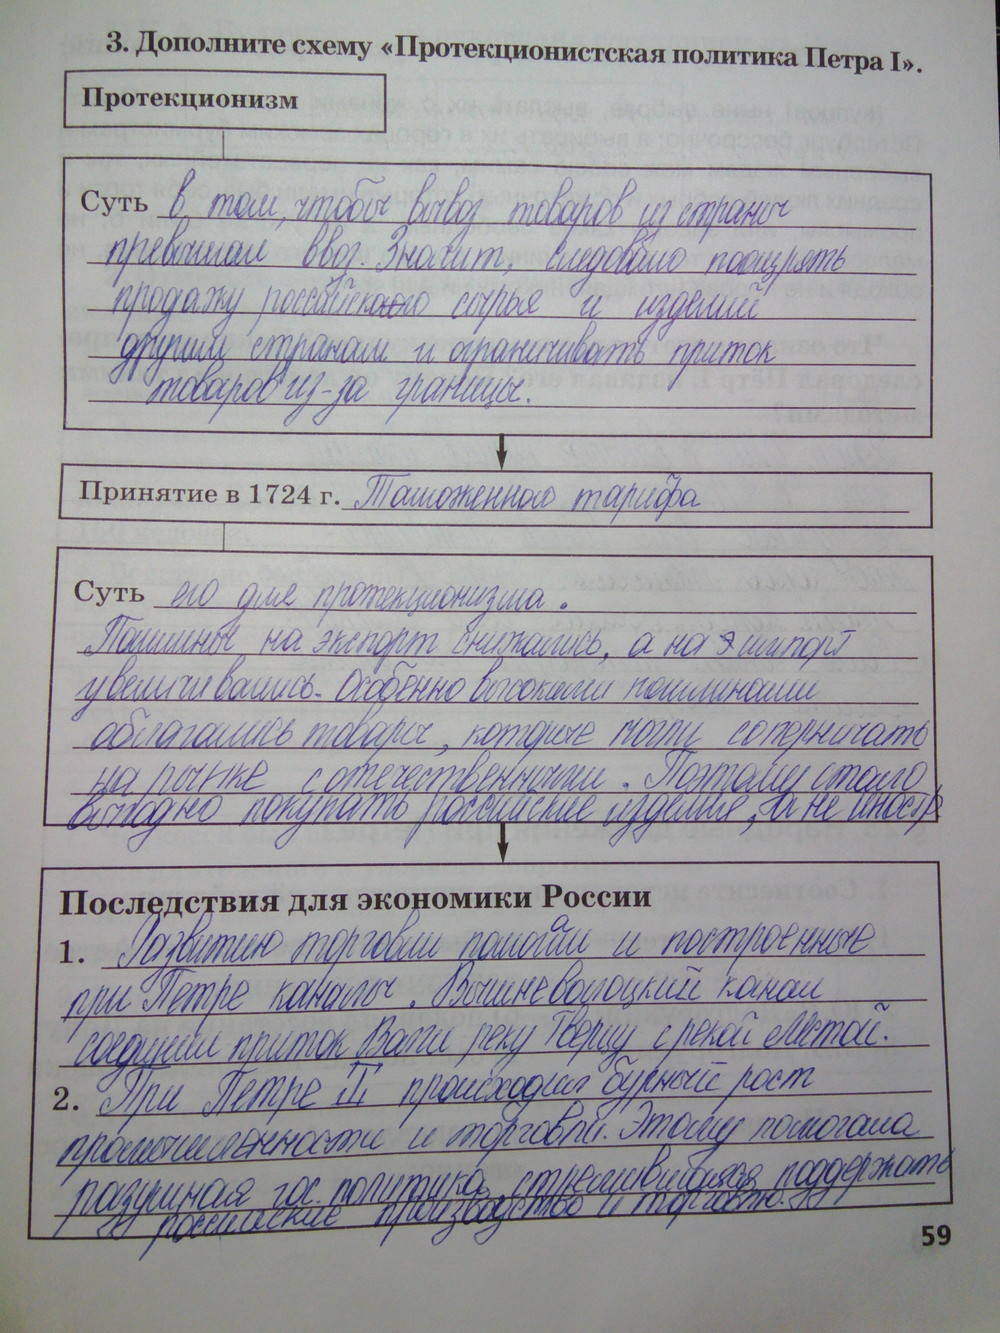 3. Дополните схему «Протекционистская политика Петра I».
Протекционизм
Суть в том, чтобы вывоз товаров из страны
превышал ввоз. Значит, следовало поощрять
продажу российского сырья и изделий
другим странам и ограничивать приток
товаров из-за границы.
Принятие в 1724 г. Таможенного тарифа
Суть его для протекционизма.
Пошлины на экспорт снижались, а на импорт
увеличивались. Особенно высокими пошлинами
облагались товары, которые могли соперничать
на рынке с отечественными. Поэтому стало
выгодно покупать российские изделия, а не иностр
Последствия для экономики России
1. Развитию торговли помогали и построенные
при Петре каналы. Вышневолоцкий канал
соединил приток Волги реку Тверцу с рекой Мстой.
2. При Петре I происходил бурный рост
промышленности и торговли. Этому помогала
разумная гос. политика, стремившаяся поддержать
российские производство и торговлю.
59